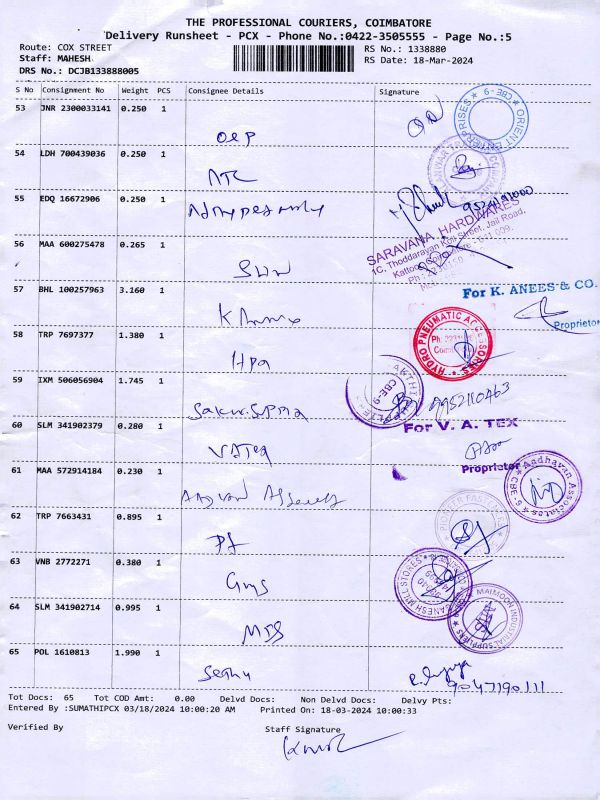 THE PROFESSIONAL COURIERS, COIMBATORE
Delivery Runsheet - PCX - Phone No.:0422-3505555 - Page No.:5
Route: COX STREET RS No.: 1338880
Staff: MAHESH RS Date: 18-Mar-2024
DRS No.: DCJB133888005
S No Consignment No Weight PCS Consignee Details Signature
53 JNR 2300033141 0.250 1
OEP
ORIENT ENTERPRISES CBE-9
54 LDH 700439036 0.250 1
ATC
55 EDQ 16672906 0.250 1
SARAVANA HARDWARES
1C, Thoddarayan Koil Street, Jail Road,
56 MAA 600275478 0.265 1
SHW
57 BHL 100257963 3.160 1
For K. ANEES & CO.
Proprietor
58 TRP 7697377 1.380 1
HPA
HYDRO PNEUMATIC ACCESSORIES
59 IXM 506056904 1.745 1
CBE-9
9952110463
60 SLM 341902379 0.280 1
VATex
For V. A. TEX
Proprietor
61 MAA 572914184 0.230 1
Aadhavan Associates CBE-9
62 TRP 7663431 0.895 1
PF
PIONEER FASTENERS
63 VNB 2772271 0.380 1
GMS
GANESH MILL STORES
64 SLM 341902714 0.995 1
MIS
MAIMOON INDUSTRIAL SUPPLIERS
65 POL 1610813 1.990 1
Sethu
9047190111
Tot Docs: 65 Tot COD Amt: 0.00 Delvd Docs: Non Delvd Docs: Delvy Pts:
Entered By :SUMATHIPCX 03/18/2024 10:00:20 AM Printed On: 18-03-2024 10:00:33
Verified By Staff Signature